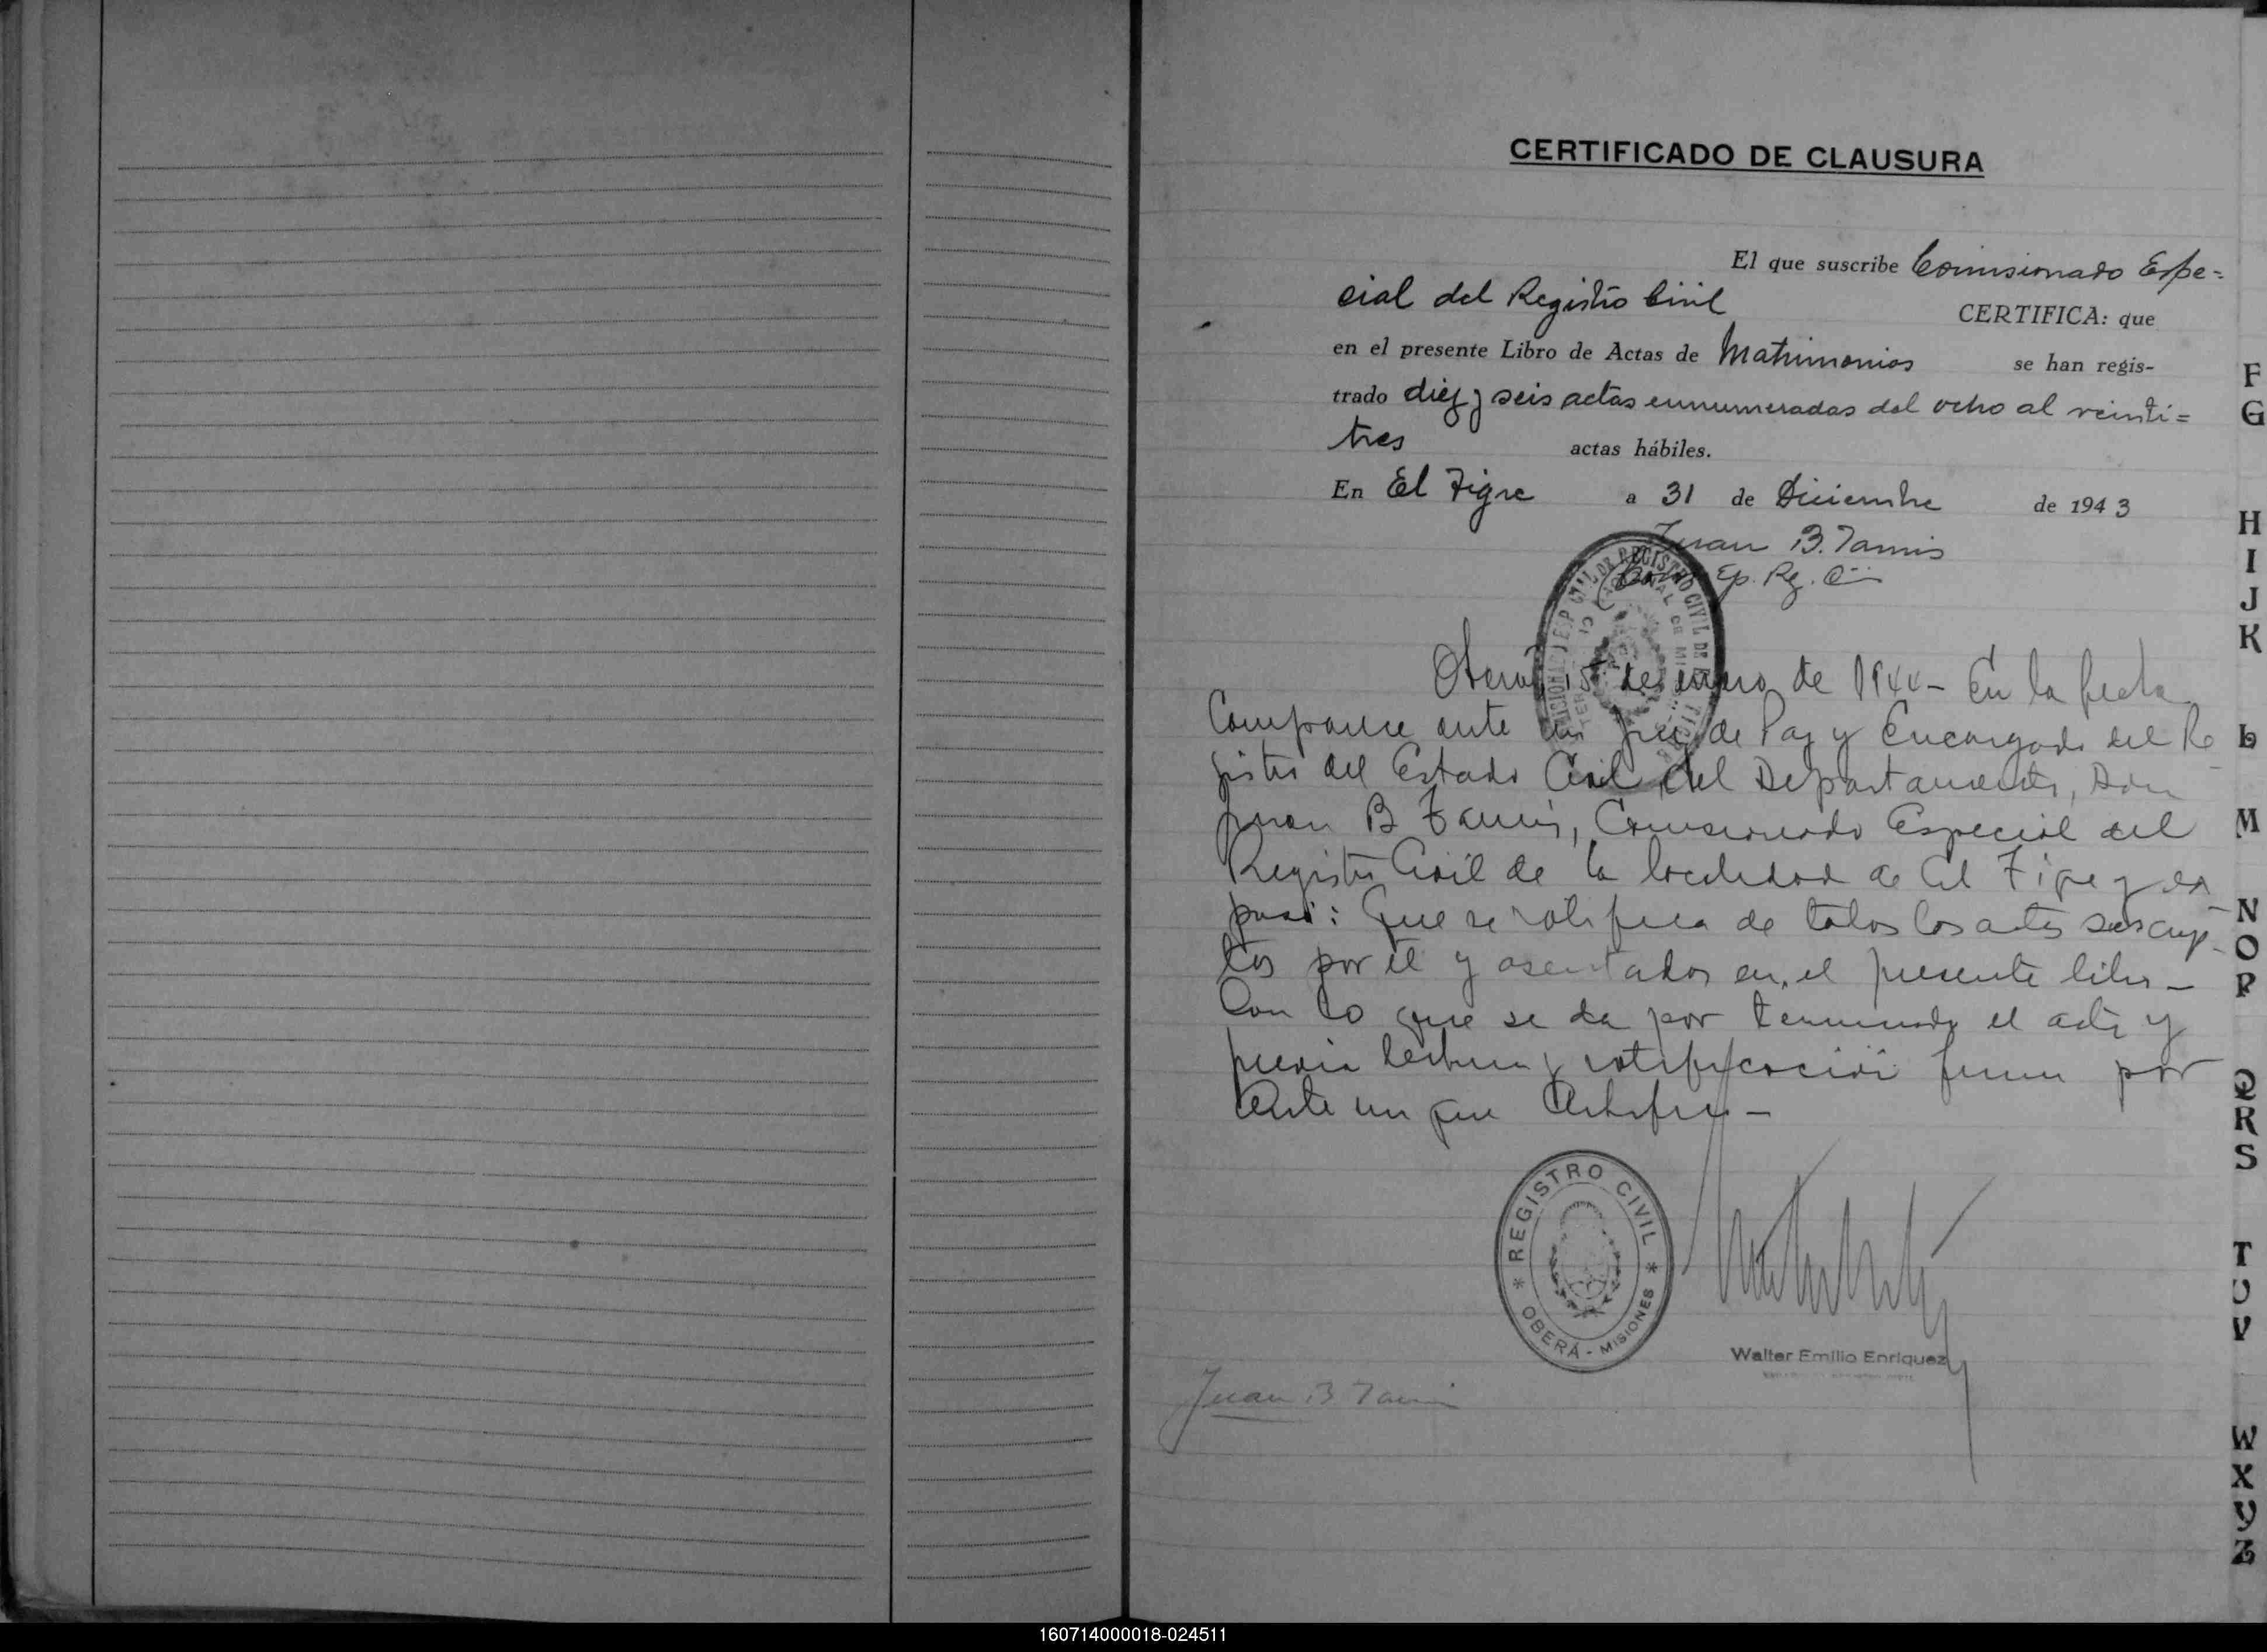 CERTIFICADO DE CLAUSURA
El que suscribe Comisionado Espe=
cial del Registro Civil CERTIFICA: que
en el presente Libro de Actas de Matrimonios se han regis-
trado diez y seis actas ennumeradas del ocho al veinti=
tres actas hábiles.
En El Tigre a 31 de Diciembre de 1943
Juan B. Tamis
Ep. Rg.
15 de enero de 1944 - En la fecha
Comparece ante de Paz y Encargado del Re
gistro del Estado Civil del Departamento, Don
Juan B Tamis, Comisionado Especial del
Registro Civil de la localidad de El Tigre y ex
puso: Que se ratifica de todos los actos suscrip-
tos por él y asentados en el presente libro -
Con lo que se da por terminado el acto y
previa lectura y ratificación firma por
Ante mi que Certifico -
REGISTRO CIVIL
OBERÁ - MISIONES
Walter Emilio Enriquez
Juan B Tamis
F
G
H
I
J
K
L
M
N
O
P
Q
R
S
T
U
V
W
X
Y
Z
160714000018-024511